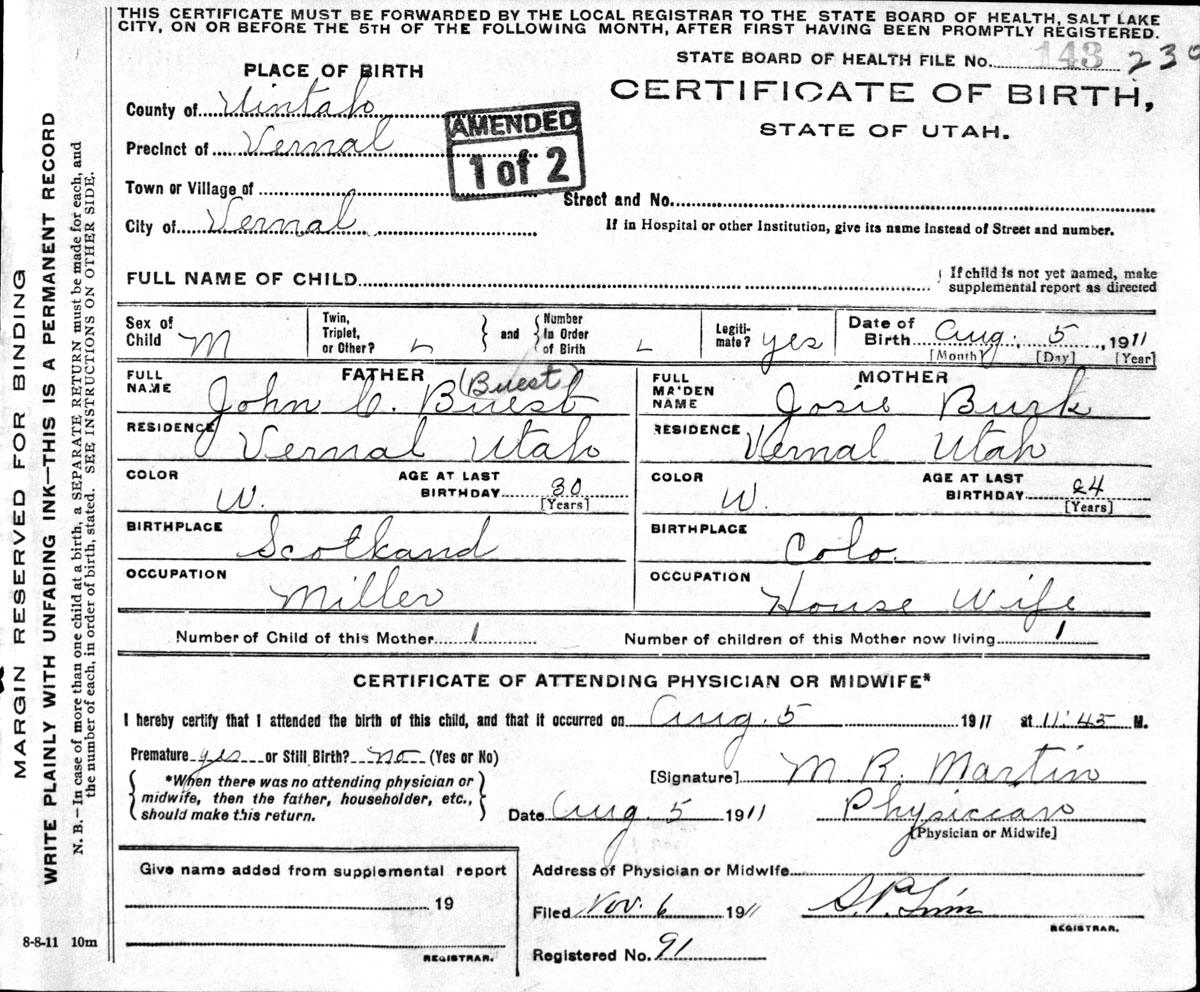 THIS CERTIFICATE MUST BE FORWARDED BY THE LOCAL REGISTRAR TO THE STATE BOARD OF HEALTH, SALT LAKE
CITY, ON OR BEFORE THE 5TH OF THE FOLLOWING MONTH, AFTER FIRST HAVING BEEN PROMPTLY REGISTERED.
STATE BOARD OF HEALTH FILE No. 143 230
PLACE OF BIRTH
CERTIFICATE OF BIRTH,
STATE OF UTAH.
County of Uintah
Precinct of Vernal
AMENDED
1 of 2
Town or Village of
Street and No.
City of Vernal
If in Hospital or other Institution, give its name instead of Street and number.
FULL NAME OF CHILD
If child is not yet named, make
supplemental report as directed
Sex of Child M
Twin, Triplet, or Other?
and
Number In Order of Birth
Legiti-mate? yes
Date of Birth Aug. 5, 1911
[Month] [Day] [Year]
FATHER
FULL NAME John C. Buest (Buest)
MOTHER
FULL MAIDEN NAME Josie Burk
RESIDENCE Vernal Utah
RESIDENCE Vernal Utah
COLOR W.
AGE AT LAST BIRTHDAY 30
[Years]
COLOR W
AGE AT LAST BIRTHDAY 24
[Years]
BIRTHPLACE Scotkand
BIRTHPLACE Colo.
OCCUPATION Miller
OCCUPATION House Wife
Number of Child of this Mother 1
Number of children of this Mother now living 1
CERTIFICATE OF ATTENDING PHYSICIAN OR MIDWIFE*
I hereby certify that I attended the birth of this child, and that it occurred on Aug. 5 1911 at 11:45 M.
Premature yes or Still Birth? no (Yes or No)
*When there was no attending physician or
midwife, then the father, householder, etc.,
should make this return.
[Signature] M R. Martin
Date Aug. 5 1911
Physiccian
[Physician or Midwife]
Give name added from supplemental report
19
REGISTRAR.
Address of Physician or Midwife
Filed Nov. 6 1911
REGISTRAR.
Registered No. 91
MARGIN RESERVED FOR BINDING
WRITE PLAINLY WITH UNFADING INK—THIS IS A PERMANENT RECORD
N. B.—In case of more than one child at a birth, a SEPARATE RETURN must be made for each, and
the number of each, in order of birth, stated. SEE INSTRUCTIONS ON OTHER SIDE.
8-8-11 10m